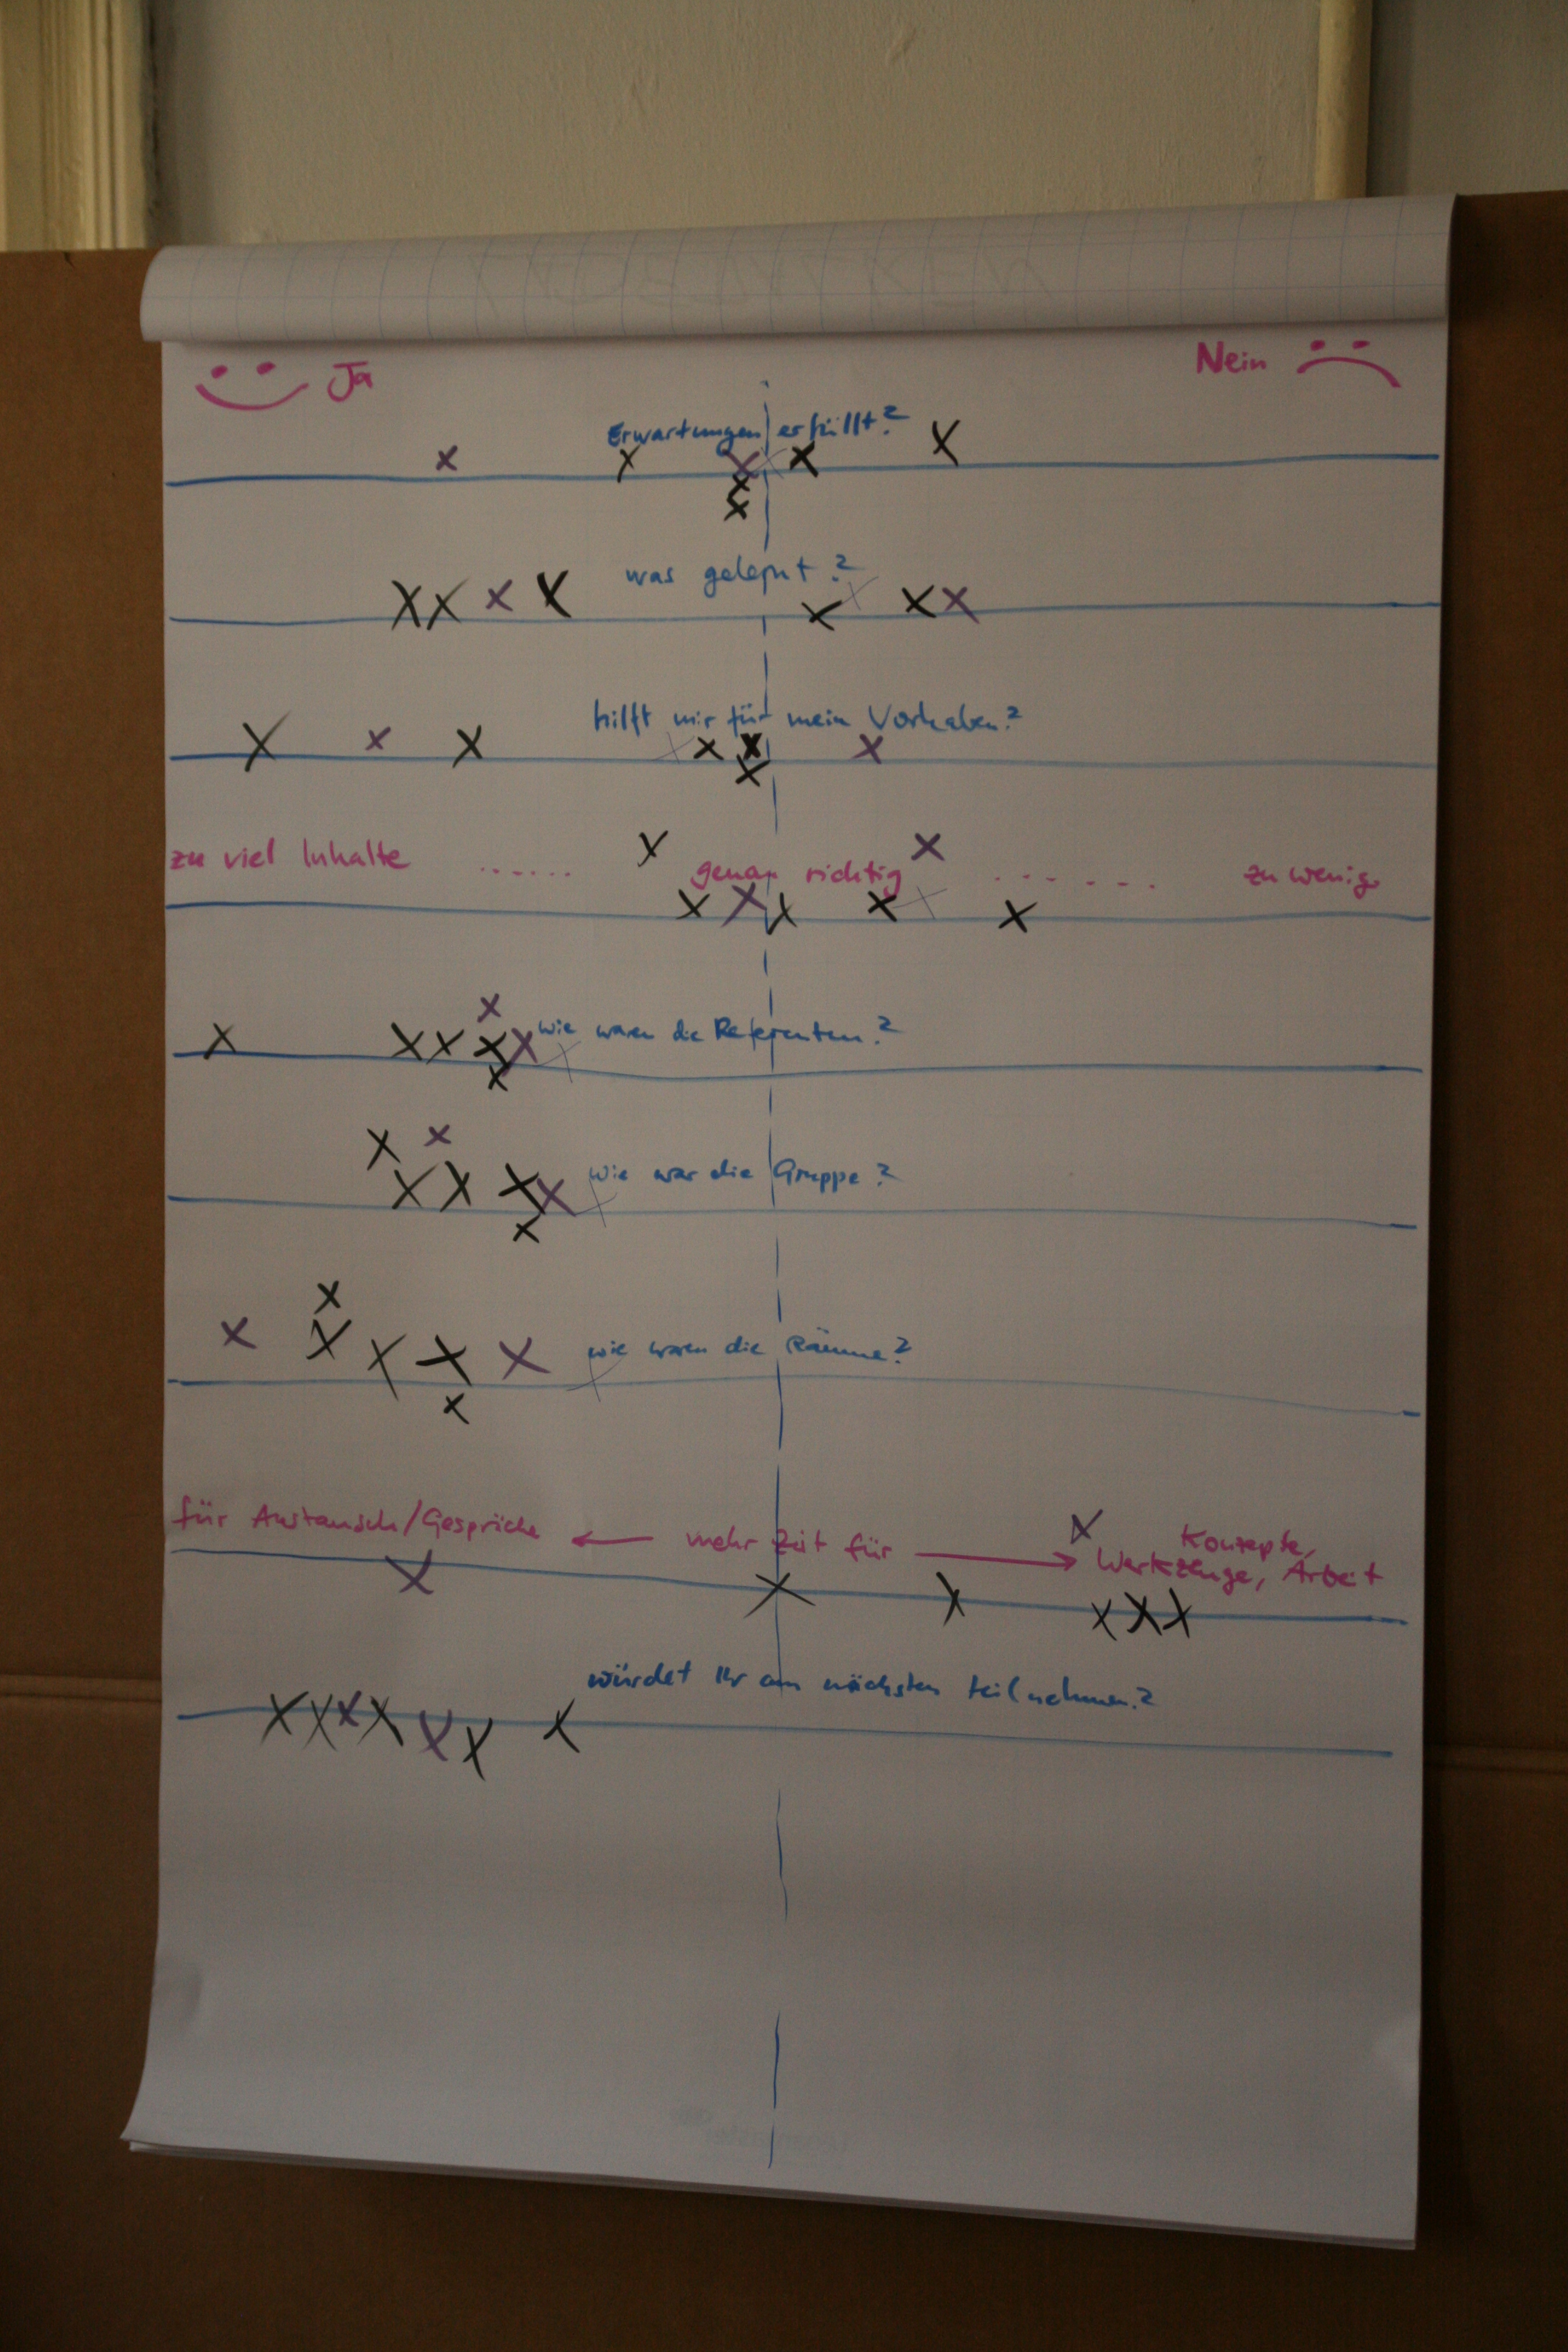 Ja
Nein
Erwartungen erfüllt?
was gelernt?
hilft mir für mein Vorhaben?
zu viel Inhalte ...... genau richtig ....... zu wenig
wie waren die Referenten?
wie war die Gruppe?
wie waren die Räume?
für Austausch/Gespräche ← mehr Zeit für → Konzepte,
Werkzeuge, Arbeit
würdet Ihr am nächsten teilnehmen?